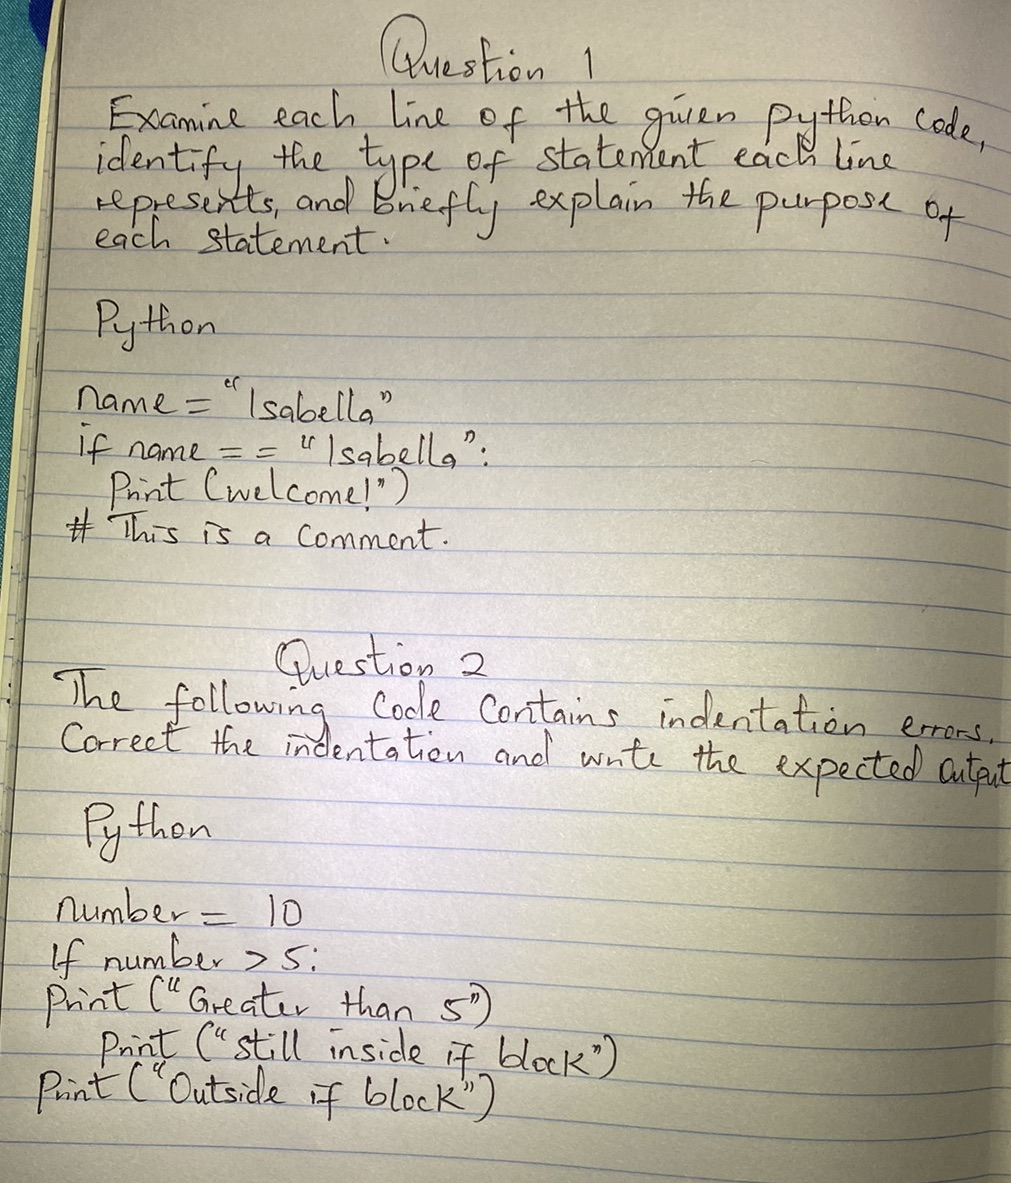 Question 1
Examine each line of the given python code,
identify the type of statement each line
represents, and briefly explain the purpose of
each statement.
Python
name = "Isabella"
if name = = "Isabella":
Print (welcome!")
# This is a comment.
Question 2
The following Code Contains indentation errors.
Correct the indentation and write the expected output
Python
number = 10
If number > 5:
Print ("Greater than 5")
Print ("still inside if block")
Print ("Outside if block")